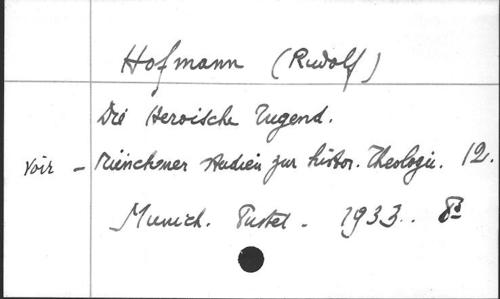 Hofmann (Rudolf)
Die Heroische Tugend.
Voir - Münchner Studien zur histor. Theologie. 12.
Munich. Pustet. 1933.